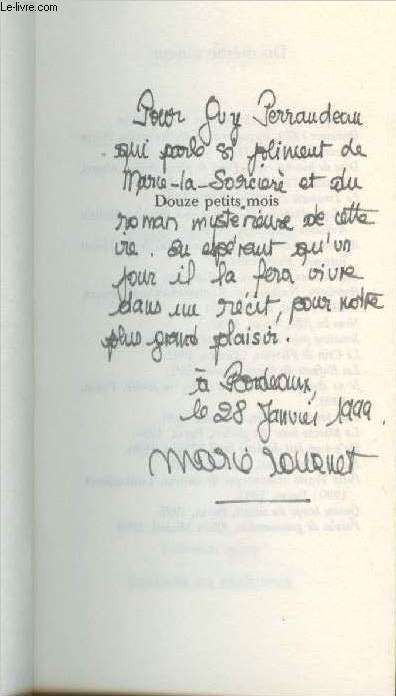 Le-livre.com
Pour Guy Perraudeau
qui parle si joliment de
Marie-la-Sorcière et du
Douze petits mois
roman mysterieuse de cette
vie. En espérant qu'un
jour il la fera vivre
dans un récit, pour notre
plus grand plaisir.
à Bordeaux,
le 28 Janvier 1999.
Marie Rouanet